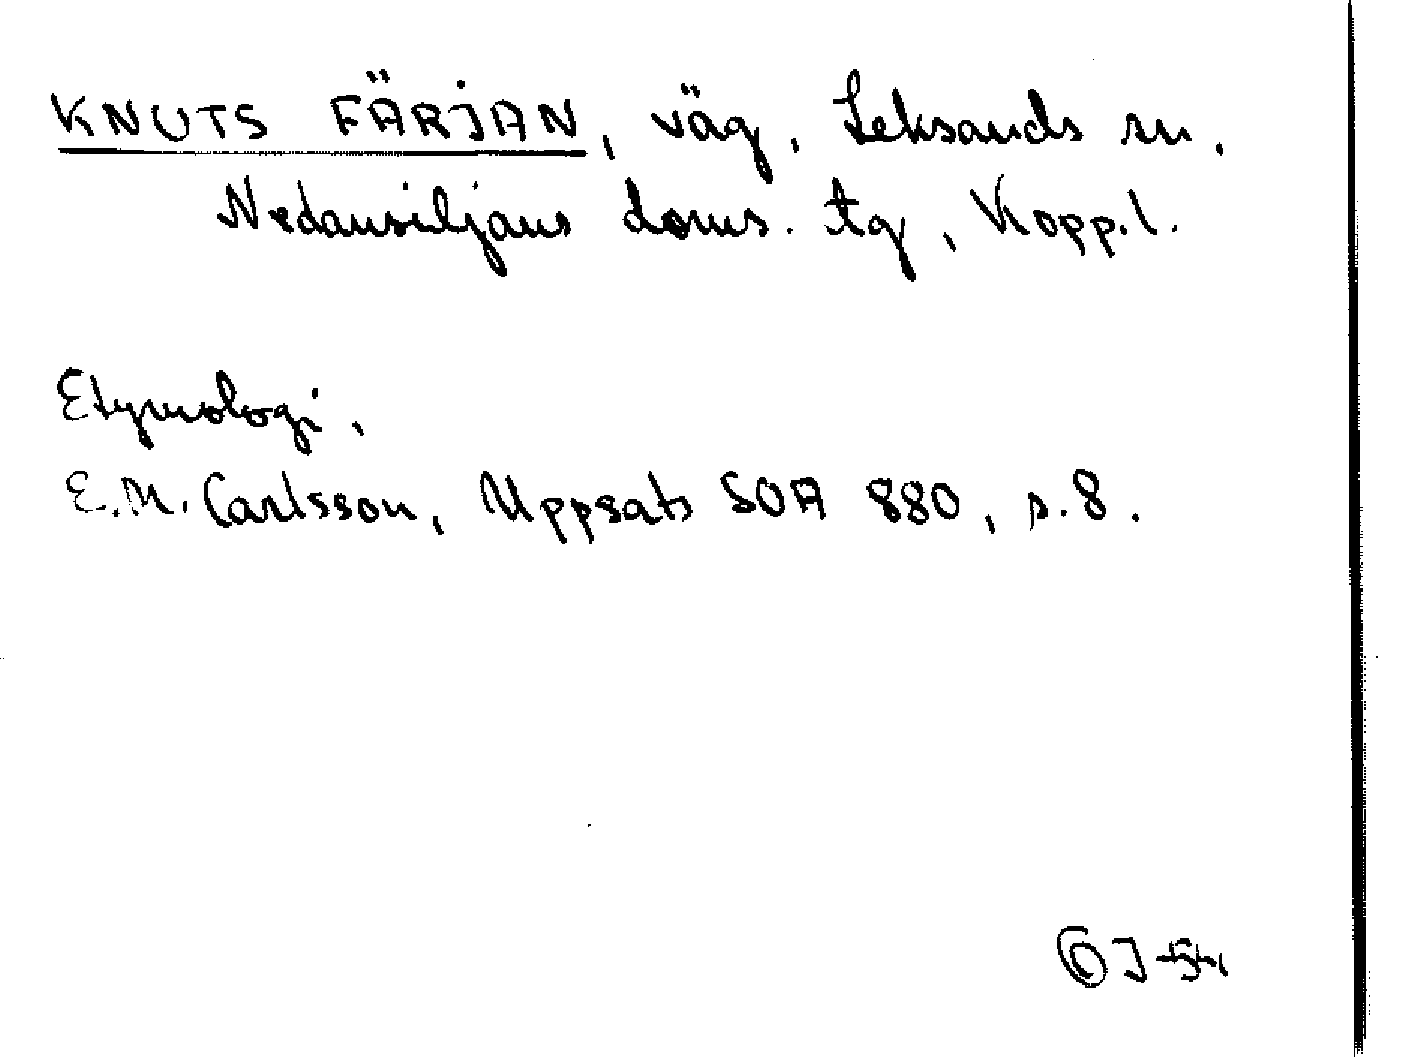 KNUTS FÄRJAN, väg, Leksands sn.
Nedansiljans doms. tg, Kopp.l.
Etymologi,
E.M. Carlsson, Uppsats SOA 880, s.8.